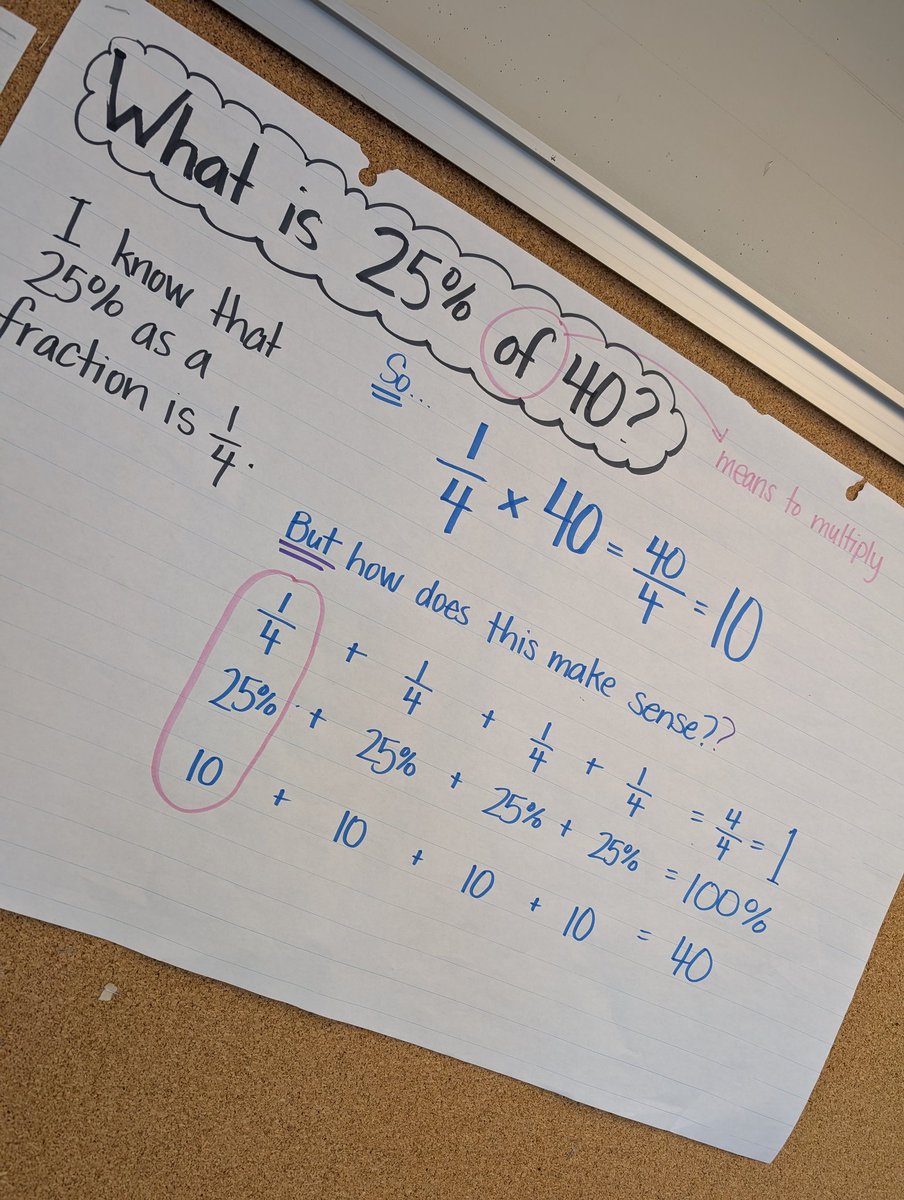 What is 25% of 40?
means to multiply
I know that
25% as a
fraction is 1/4.
So...
1/4 × 40 = 40/4 = 10
But how does this make sense??
1/4 + 1/4 + 1/4 + 1/4 = 4/4 = 1
25% + 25% + 25% + 25% = 100%
10 + 10 + 10 + 10 = 40